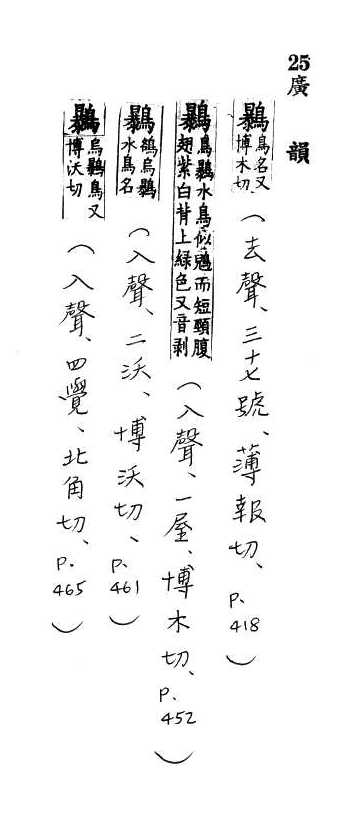 25廣韻
鸔鳥名又博木切（去聲、三十七號、薄報切、P.418）
鸔烏鸔水鳥似鶂而短頸腹翅紫白背上綠色又音剥（入聲、一屋、博木切、P.452）
鸔鴾烏鸔水鳥名（入聲、二沃、博沃切、P.461）
鸔烏鸔鳥又博沃切（入聲、四覺、北角切、P.465）